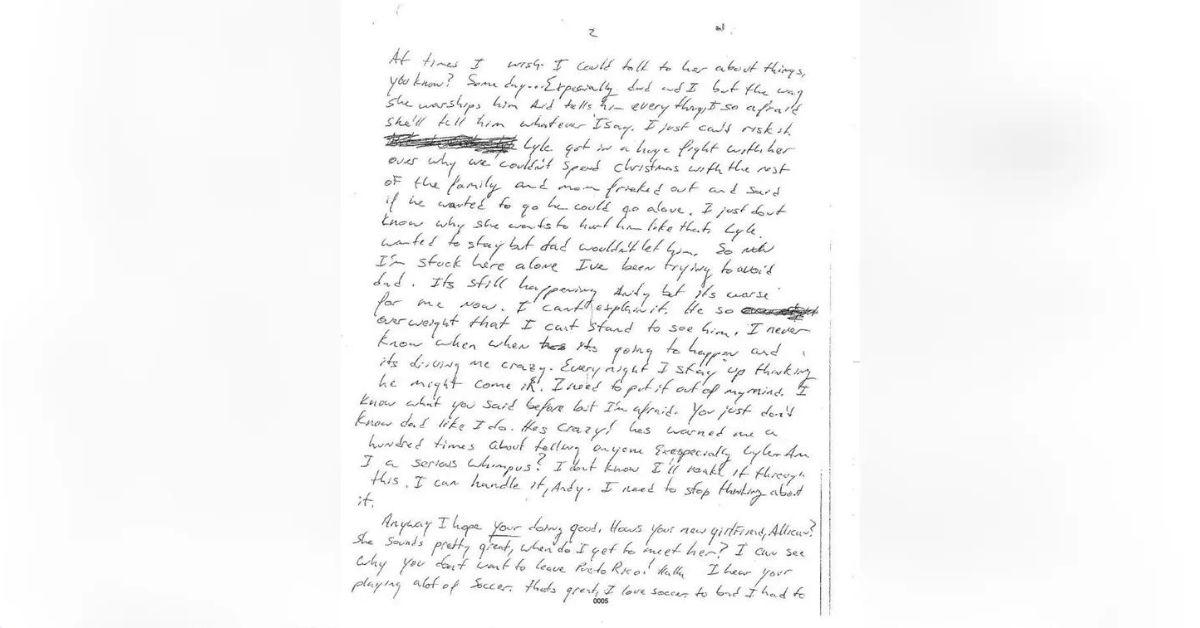 2
At times I wish I could talk to her about things,
you know? Some day... Expecially dad and I but the way
she worships him and tells him everything, I so afraid
she'll tell him whatever I say. I just can't risk it
Lyle got in a huge fight with her
over why we couldn't spend Christmas with the rest
of the family and mom freaked out and said
if he wanted to go he could go alone. I just dont
know why she wants to hurt him like that. Lyle
wanted to stay but dad wouldn't let him. So now
I'm stuck here alone I've been trying to avoid
dad. Its still happening Andy but its worse
for me now. I can't explain it. He so
overweight that I cant stand to see him. I never
know when when its going to happen and
its driving me crazy. Every night I stay up thinking
he might come in. I need to put it out of my mind. I
know what you said before but I'm afraid. You just don't
know dad like I do. Hes crazy! hes warned me a
hundred times about telling anyone Lyle. Am
I a serious whimpus? I dont know I'll make it through
this. I can handle it, Andy. I need to stop thinking about
it.
Anyway I hope your doing good. Hows your new girlfriend,
She sounds pretty great, when do I get to meet her? I can see
why you dont want to leave Puerto Rico! I hear your
playing alot of Soccer. thats great, I love soccer to but I had to
0005